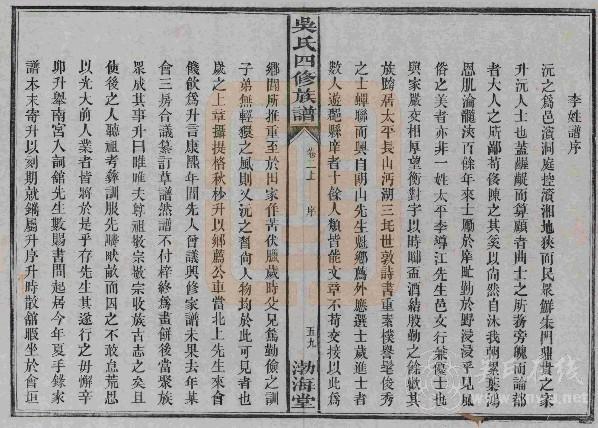 李姓譜序
沅之爲邑濱洞庭控濱湘地狹而民眾鮮朱門鼎貴之家
升沅人士也蓋齷齪而算顧者曲士之所務旁魄而論都
者大人之所鄙苟後陳之其奚以尚然自沐我朝累葉鴻
恩肌淪髓浹百餘年來士勵於庠耻勤於野浸浸乎見風
俗之美者亦非一姓太平李導江先生邑文行兼優士也
與家嚴交相厚望衡對宇以時聯盃酒結殷勤之餘歡其
族躋居太平長山沔湖三垸世敦詩書重素樸譽髦俊秀
之士蟬聯而興自閬山先生魁鄉爲外應選士歲進士者
數人遊縣庠者十餘人類皆能文章不苟交接以此爲
吳氏四修族譜
卷二上
序
五九
渤海堂
鄉閭所推重至於田家作苦伏臘歲時父兄爲勤儉之訓
子弟無輕猥之風則又沅之舊向人物均於此可見者也
歲之上章攝提格秋杪升以鄉薦公車當北上先生來會
餞飲爲升言康熙年間先人曾議興修家譜未果去年某
會三房合議纂訂草譜然譜不付梓終爲畫餅後當聚族
眾成其事升曰唯唯夫尊祖敬宗敬宗收族古志之矣且
使後之人聽祖考彝訓服先疇畎畝而因之不敢怠荒思
以光大前人業者皆將於是乎存先生其遂行之毋懈辛
卯升舉南宮入詞舘先生數賜書問起居今年夏手錄家
譜本末寄升以刻期就鐫屬升序升時散舘暇坐於會垣